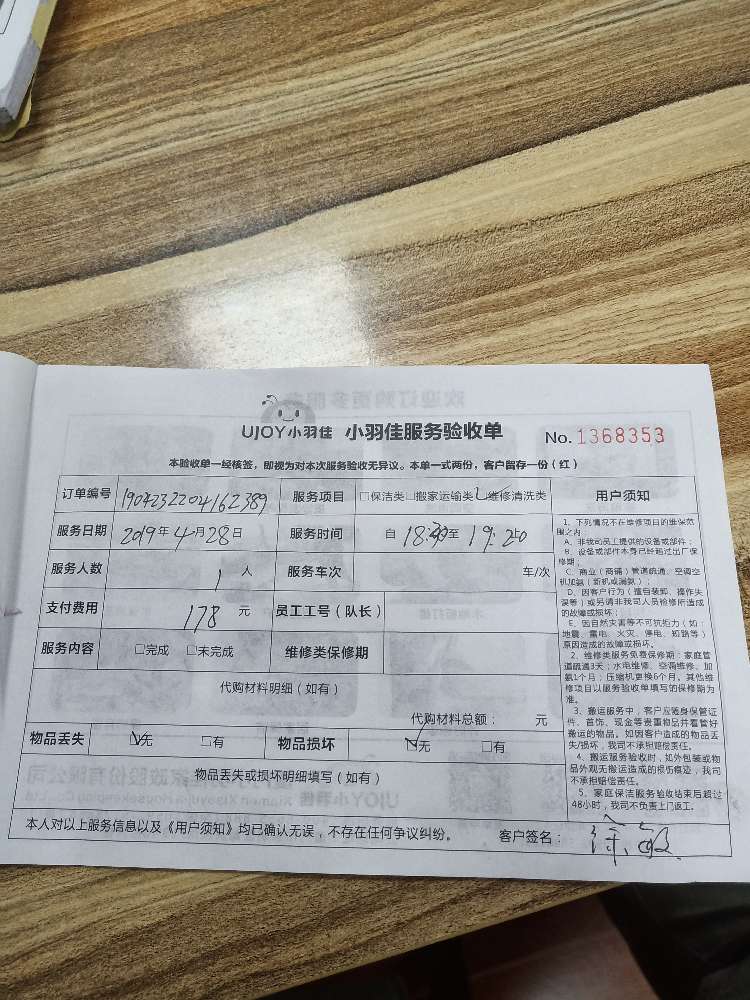 UJOY小羽佳 小羽佳服务验收单 No. 1368353
本验收单一经核签，即视为对本次服务验收无异议。本单一式两份，客户留存一份（红）
订单编号 1904232204162389 服务项目 □保洁类□搬家运输类☑维修清洗类
服务日期 2019年4月28日 服务时间 自 18:30至 19:20
服务人数 1 人 服务车次 车/次
支付费用 178 元 员工工号（队长）
服务内容 □完成 □未完成 维修类保修期
代购材料明细（如有）
代购材料总额： 元
物品丢失 ☑无 □有 物品损坏 ☑无 □有
物品丢失或损坏明细填写（如有）
本人对以上服务信息以及《用户须知》均已确认无误，不存在任何争议纠纷。 客户签名：
用户须知
1、下列情况不在维修项目的维保范
围之内：
A、非我司员工提供的设备或部件；
B、设备或部件本身已经超过出厂保
修期；
C、商业（商铺）管道疏通、空调空
机加氨（新机或漏氨）；
D、因客户行为（擅自装卸、操作失
误等）或另请非我司人员检修所造成
的故障或损坏；
E、因自然灾害等不可抗拒力（如：
地震、雷电、火灾、停电、短路等）
原因造成的故障或损坏。
2、维修类服务免费保修期：家庭管
道疏通3天；水电维修、空调维修、加
氨1个月；压缩机更换6个月。其他维
修项目以服务验收单填写的保修期为
准。
3、搬运服务中，客户应随身保管证
件、首饰、现金等贵重物品并看管好
搬运的物品。如因客户造成的物品丢
失/损坏，我司不承担赔偿责任。
4、搬运服务验收时，如外包装或物
品外观无搬运造成的损伤痕迹，我司
不承担赔偿责任。
5、家庭保洁服务验收结束后超过
48小时，我司不负责上门返工。